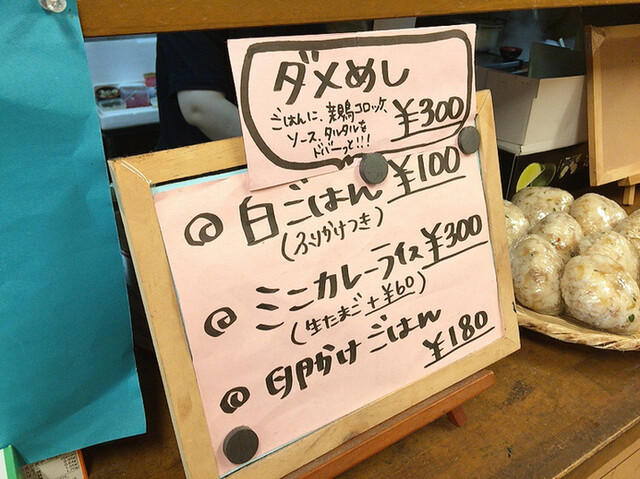 ダメめし
ごはんに、親鶏コロッケ、
ソース、タルタルを
ドバーっと!!!
¥300
白ごはん ¥100
(ふりかけつき)
ミニカレーライス ¥300
(生たまご+¥60)
卵かけごはん
¥180